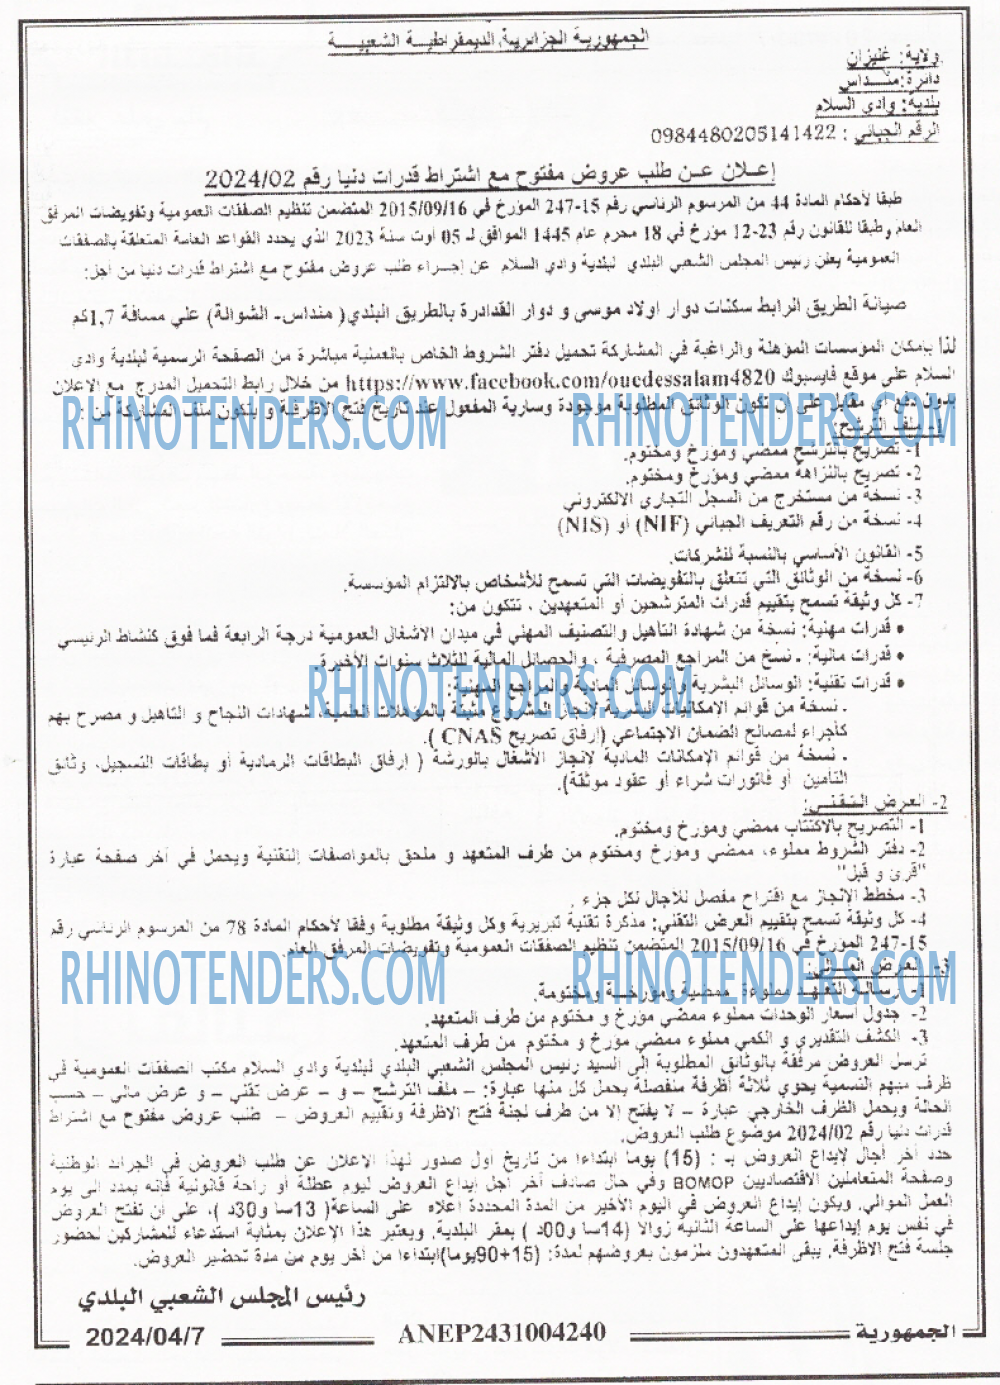 الجمهورية الجزائرية الديمقراطية الشعبية
ولاية: غليزان
دائرة: منداس
بلدية: وادي السلام
الرقم الجبائي : 0984480205141422
إعلان عن طلب عروض مفتوح مع اشتراط قدرات دنيا رقم 2024/02
طبقا لأحكام المادة 44 من المرسوم الرئاسي رقم 15-247 المؤرخ في 2015/09/16 المتضمن تنظيم الصفقات العمومية وتفويضات المرفق
العام وطبقا للقانون رقم 23-12 مؤرخ في 18 محرم عام 1445 الموافق لـ 05 أوت سنة 2023 الذي يحدد القواعد العامة المتعلقة بالصفقات
العمومية يعلن رئيس المجلس الشعبي البلدي لبلدية وادي السلام عن إجراء طلب عروض مفتوح مع اشتراط قدرات دنيا من أجل:
صيانة الطريق الرابط سكنات دوار اولاد موسى و دوار القدادرة بالطريق البلدي( منداس- الشوالة) علي مسافة 1,7كم
لذا بإمكان المؤسسات المؤهلة والراغبة في المشاركة تحميل دفتر الشروط الخاص بالعملية مباشرة من الصفحة الرسمية لبلدية وادي
السلام على موقع فايسبوك https://www.facebook.com/ouedessalam4820 من خلال رابط التحميل المدرج مع الإعلان
بدون دفع أي مقابل على أن تكون الوثائق المطلوبة موجودة وسارية المفعول عند تاريخ فتح الاظرفة و يتكون ملف المشاركة من :
RHINOTENDERS.COM RHINOTENDERS.COM
1- ملف الترشح:
1- تصريح بالترشح ممضي ومؤرخ ومختوم.
2- تصريح بالنزاهة ممضي ومؤرخ ومختوم.
3- نسخة من مستخرج من السجل التجاري الالكتروني
4- نسخة من رقم التعريف الجبائي (NIF) أو (NIS)
5- القانون الأساسي بالنسبة للشركات.
6- نسخة من الوثائق التي تتعلق بالتفويضات التي تسمح للأشخاص بالالتزام المؤسسة.
7- كل وثيقة تسمح بتقييم قدرات المترشحين أو المتعهدين ، تتكون من:
• قدرات مهنية: نسخة من شهادة التأهيل والتصنيف المهني في ميدان الاشغال العمومية درجة الرابعة فما فوق كنشاط الرئيسي
• قدرات مالية: . نسخ من المراجع المصرفية . والحصائل المالية للثلاث سنوات الأخيرة.
• قدرات تقنية: الوسائل البشرية والوسائل المادية والمراجع المهنية:
RHINOTENDERS.COM
. نسخة من قوائم الإمكانيات البشرية لإنجاز المشروع مثبتة بالمؤهلات العلمية، شهادات النجاح و التاهيل و مصرح بهم
كأجراء لمصالح الضمان الاجتماعي (إرفاق تصريح CNAS ).
. نسخة من قوائم الإمكانات المادية لإنجاز الأشغال بالورشة ( إرفاق البطاقات الرمادية أو بطاقات التسجيل، وثائق
التأمين أو فاتورات شراء أو عقود موثقة).
2- العرض التقني:
1- التصريح بالاكتتاب ممضي ومؤرخ ومختوم.
2- دفتر الشروط مملوء، ممضي ومؤرخ ومختوم من طرف المتعهد و ملحق بالمواصفات التقنية ويحمل في آخر صفحة عبارة
"قرئ و قبل"
3- مخطط الإنجاز مع اقتراح مفصل للآجال لكل جزء .
4- كل وثيقة تسمح بتقييم العرض التقني: مذكرة تقنية تبريرية وكل وثيقة مطلوبة وفقا لأحكام المادة 78 من المرسوم الرئاسي رقم
15-247 المؤرخ في 2015/09/16 المتضمن تنظيم الصفقات العمومية وتفويضات المرفق العام.
RHINOTENDERS.COM RHINOTENDERS.COM
3- العرض المالي:
1- رسالة التعهد مملوءة ممضية ومؤرخة ومختومة.
2- جدول أسعار الوحدات مملوء ممضي مؤرخ و مختوم من طرف المتعهد.
3- الكشف التقديري و الكمي مملوء ممضي مؤرخ و مختوم من طرف المتعهد.
ترسل العروض مرفقة بالوثائق المطلوبة إلى السيد رئيس المجلس الشعبي البلدي لبلدية وادي السلام مكتب الصفقات العمومية في
ظرف مبهم التسمية يحوي ثلاثة أظرفة منفصلة يحمل كل منها عبارة: – ملف الترشح – و – عرض تقني – و – عرض مالي – حسب
الحالة ويحمل الظرف الخارجي عبارة – لا يفتح إلا من طرف لجنة فتح الاظرفة وتقييم العروض – طلب عروض مفتوح مع اشتراط
قدرات دنيا رقم 2024/02 موضوع طلب العروض.
حدد آخر آجال لإيداع العروض بـ : (15) يوما ابتداءا من تاريخ أول صدور لهذا الإعلان عن طلب العروض في الجرائد الوطنية
وصفحة المتعاملين الاقتصاديين BOMOP وفي حال صادف آخر أجل إيداع العروض ليوم عطلة أو راحة قانونية فإنه يمدد الى يوم
العمل الموالي. ويكون إيداع العروض في اليوم الأخير من المدة المحددة أعلاه على الساعة( 13سا و30د )، على أن تفتح العروض
في نفس يوم إيداعها على الساعة الثانية زوالا (14سا و00د ) بمقر البلدية، ويعتبر هذا الإعلان بمثابة استدعاء للمشاركين لحضور
جلسة فتح الاظرفة، يبقى المتعهدون ملزمون بعروضهم لمدة: (15+90يوما)ابتداءا من آخر يوم من مدة تحضير العروض.
رئيس المجلس الشعبي البلدي
الجمهورية ANEP2431004240 2024/04/7